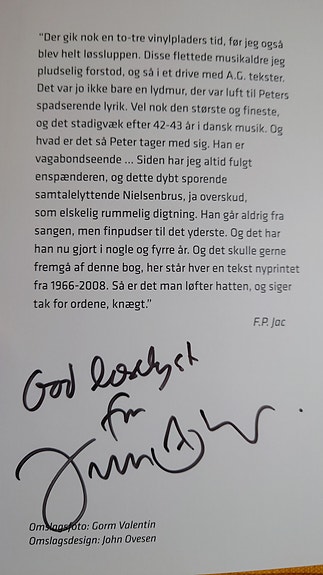 "Der gik nok en to-tre vinylpladers tid, før jeg også
blev helt løssluppen. Disse flettede musikaldre jeg
pludselig forstod, og så i et drive med A.G. tekster.
Det var jo ikke bare en lydmur, der var luft til Peters
spadserende lyrik. Vel nok den største og fineste,
og det stadigvæk efter 42-43 år i dansk musik. Og
hvad er det så Peter tager med sig. Han er
vagabondseende ... Siden har jeg altid fulgt
enspænderen, og dette dybt sporende
samtalelyttende Nielsenbrus, ja overskud,
som elskelig rummelig digtning. Han går aldrig fra
sangen, men finpudser til det yderste. Og det har
han nu gjort i nogle og fyrre år. Og det skulle gerne
fremgå af denne bog, her står hver en tekst nyprintet
fra 1966-2008. Så er det man løfter hatten, og siger
tak for ordene, knægt."
F.P. Jac
God læselyst
fra
Omslagsfoto: Gorm Valentin
Omslagsdesign: John Ovesen